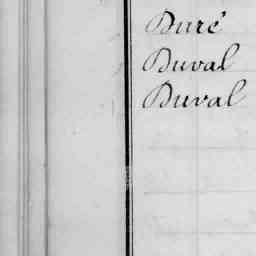 Duré
Duval
Duval